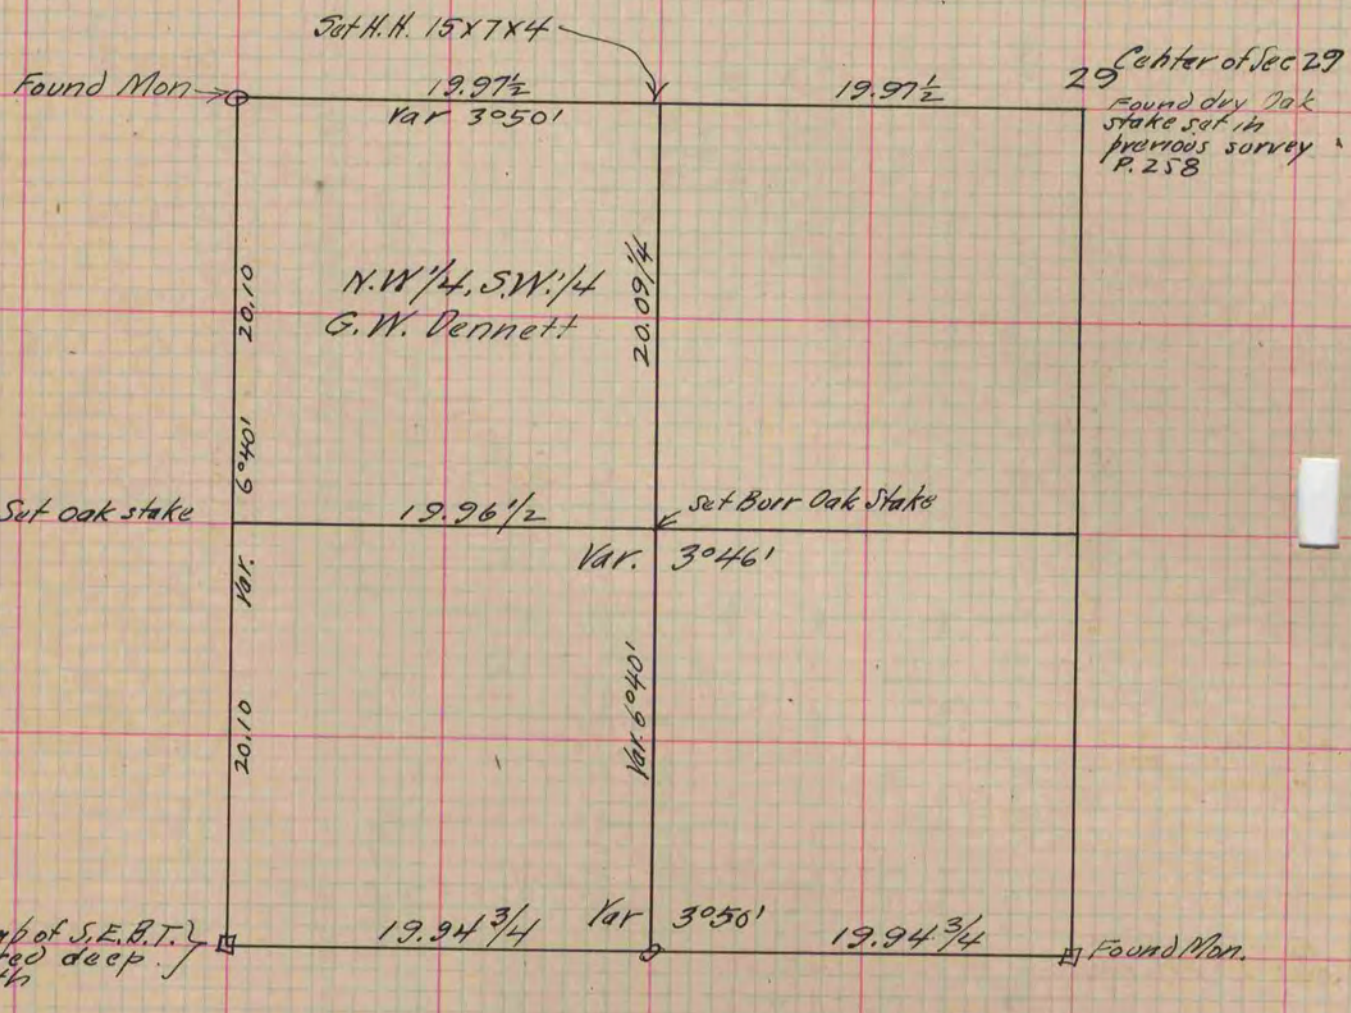 Set H.H. 15x7x4
Found Mon
19.97½
Var 3°50'
19.97½
29
Center of Sec 29
Found dry Oak
stake set in
previous survey
P.258
N.W.1/4, S.W.1/4
G.W. Dennett
20.10
20.09 1/4
6°40'
Var.
Set oak stake
19.96 1/2
Set Burr Oak Stake
Var. 3°46'
20.10
Var. 6°40'
of S.E.B.T.
deep
19.94 3/4
Var 3°50'
19.94 3/4
Found Mon.